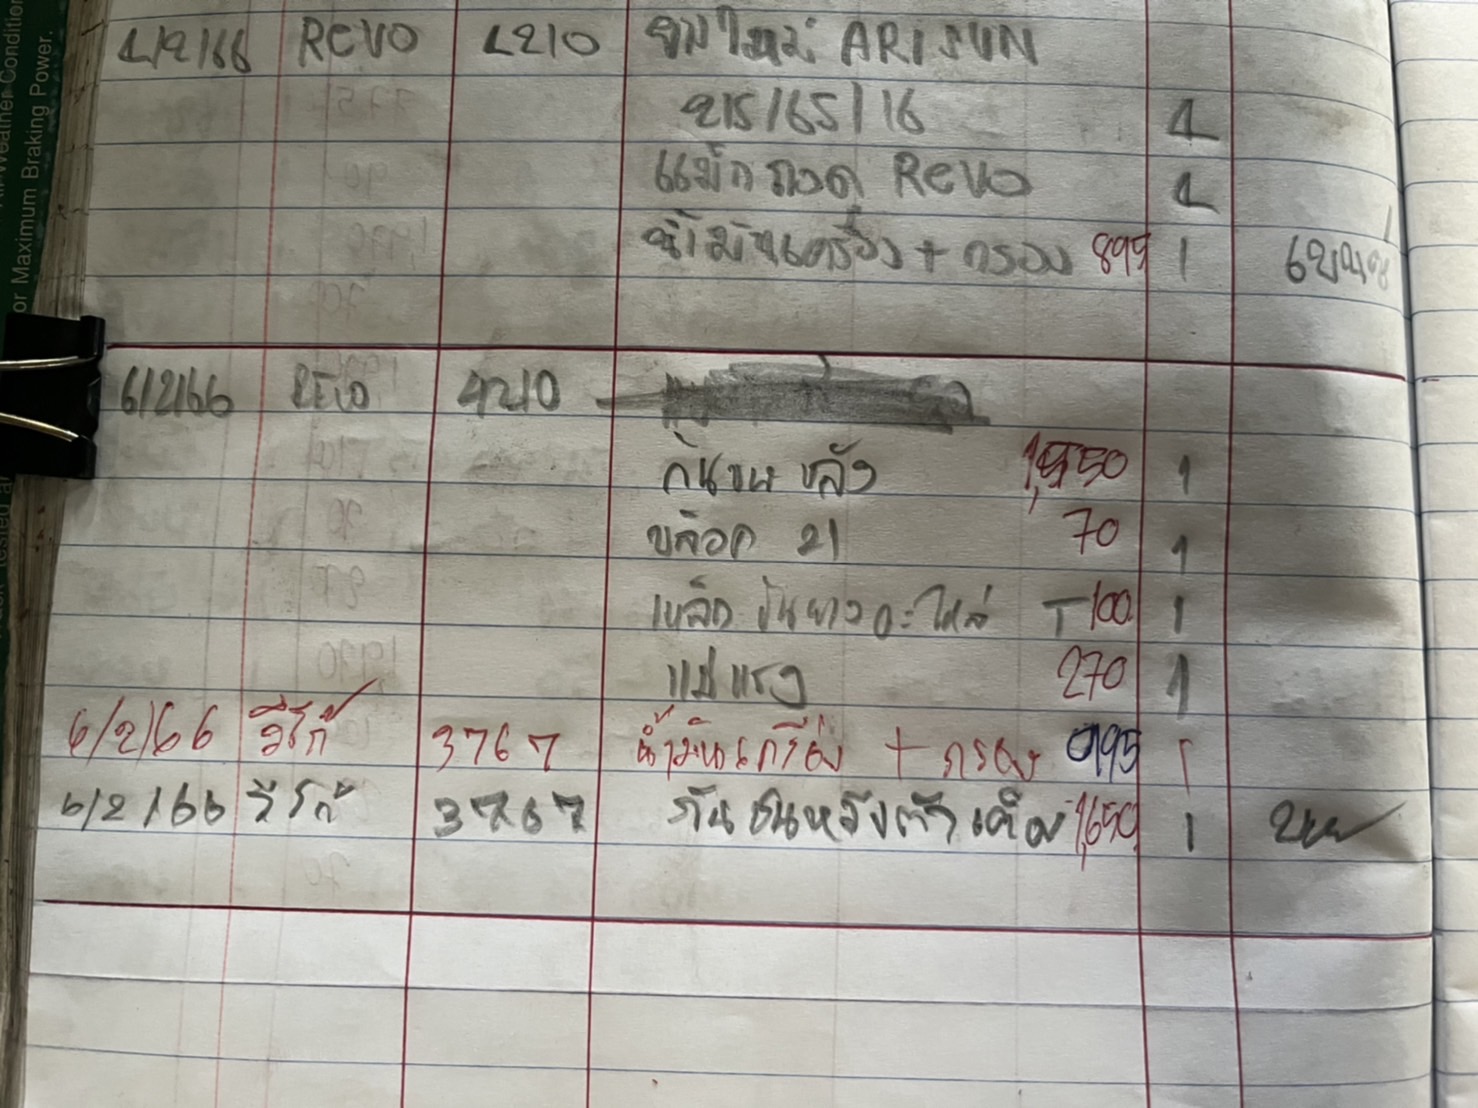 or Maximum Braking Power.
4/2/66 REVO 4210 ยางใหม่ ARISUN
215/65/16 4
แม็กถอด Revo 4
น้ำมันเครื่อง + กรอง 899 1
6/2/66 REVO 4210
กันชนหลัง 1,550 1
บล๊อก 21 70 1
เหล็กขันยางอะไหล่ T 100 1
แม่แรง 270 1
6/2/66 วีโก้ 3767 น้ำมันเครื่อง + กรอง 995 1
6/2/66 วีโก้ 3767 กันชนหลัง 1,650 1